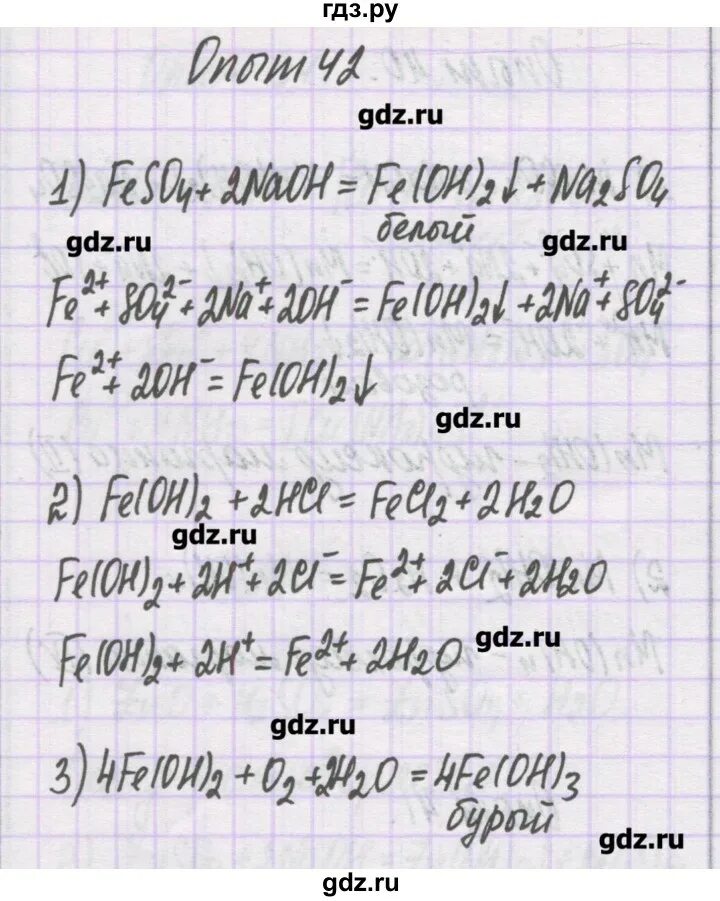 гдз.ру
Опыт 42
gdz.ru
1) FeSO₄ + 2NaOH = Fe(OH)₂↓ + Na₂SO₄
белый
gdz.ru
gdz.ru
Fe²⁺ + SO₄²⁻ + 2Na⁺ + 2OH⁻ = Fe(OH)₂↓ + 2Na⁺ + SO₄²⁻
Fe²⁺ + 2OH⁻ = Fe(OH)₂↓
gdz.ru
2) Fe(OH)₂ + 2HCl = FeCl₂ + 2H₂O
gdz.ru
Fe(OH)₂ + 2H⁺ + 2Cl⁻ = Fe²⁺ + 2Cl⁻ + 2H₂O
gdz.ru
Fe(OH)₂ + 2H⁺ = Fe²⁺ + 2H₂O
gdz.ru
3) 4Fe(OH)₂ + O₂ + 2H₂O = 4Fe(OH)₃
бурый
gdz.ru
gdz.ru